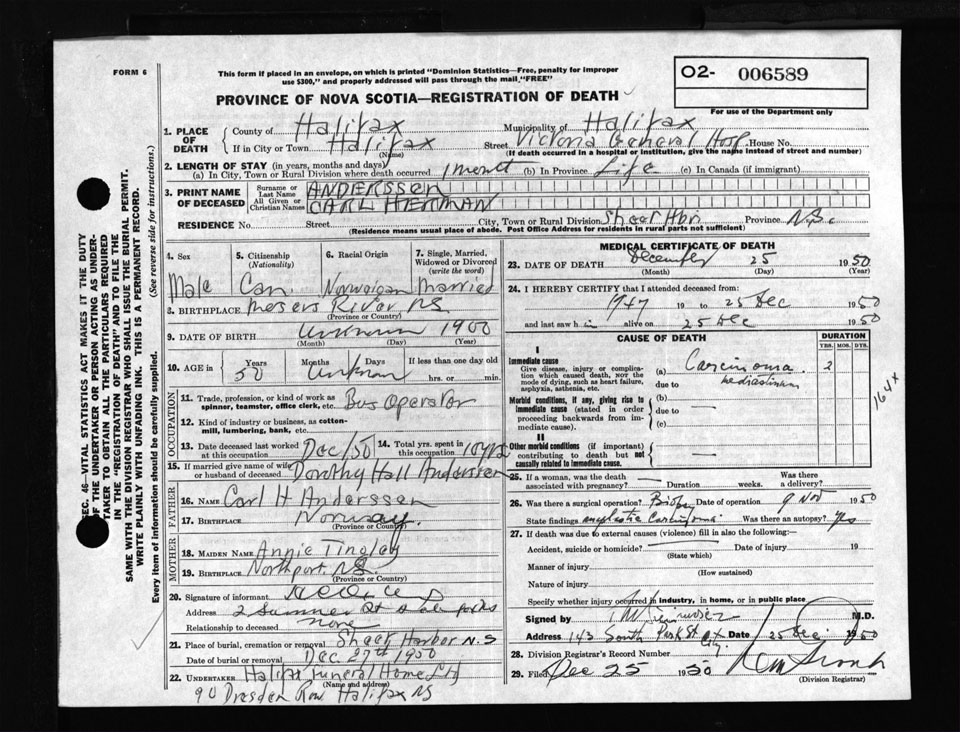 FORM 6
This form if placed in an envelope, on which is printed "Dominion Statistics—Free, penalty for improper
use $300," and properly addressed will pass through the mail, "FREE"
O2- 006589
For use of the Department only
PROVINCE OF NOVA SCOTIA—REGISTRATION OF DEATH
1. PLACE OF DEATH { County of Halifax Municipality of Halifax
If in City or Town Halifax (Name) Street Victoria General Hosp. House No.
(If death occurred in a hospital or institution, give the name instead of street and number)
2. LENGTH OF STAY (in years, months and days)
(a) In City, Town or Rural Division where death occurred 1 month (b) In Province Life (c) In Canada (if immigrant)
3. PRINT NAME OF DECEASED { Surname or Last Name ANDERSSEN
All Given or Christian Names CARL HERMAN
RESIDENCE No. Street City, Town or Rural Division Sheet Hbr Province
(Residence means usual place of abode. Post Office Address for residents in rural parts not sufficient)
4. Sex 5. Citizenship (Nationality) 6. Racial Origin 7. Single, Married, Widowed or Divorced (write the word)
Male Can. Norwegian Married
8. BIRTHPLACE Mosers River NS
(Province or Country)
9. DATE OF BIRTH Unknown 1900
(Month) (Day) (Year)
10. AGE in { Years Months Days If less than one day old
50 Unknown hrs. or min.
OCCUPATION
11. Trade, profession, or kind of work as spinner, teamster, office clerk, etc. Bus Operator
12. Kind of industry or business, as cotton-mill, lumbering, bank, etc.
13. Date deceased last worked at this occupation Dec/50 14. Total yrs. spent in this occupation 10 yrs
15. If married give name of wife or husband of deceased Dorothy Hall Anderssen
FATHER
16. NAME Carl H Anderssen
17. BIRTHPLACE Norway.
(Province or Country)
MOTHER
18. MAIDEN NAME Annie Tingley
19. BIRTHPLACE Northport. NS.
(Province or Country)
20. Signature of informant
Address 2 Sumner St
Relationship to deceased none
21. Place of burial, cremation or removal Sheet Harbor N.S
Date of burial or removal Dec 27th 1950
22. UNDERTAKER Halifax Funeral Home Ltd
(Name and address)
90 Dresden Row Halifax NS
MEDICAL CERTIFICATE OF DEATH
23. DATE OF DEATH December 25 1950
(Month) (Day) (Year)
24. I HEREBY CERTIFY that I attended deceased from:
1947 19 to 25 Dec 1950
and last saw h im alive on 25 Dec 1950
CAUSE OF DEATH DURATION
YRS. MOS. DYS.
I
Immediate cause
Give disease, injury or complication which caused death, not the mode of dying, such as heart failure, asphyxia, asthenia, etc.
(a) Carcinoma 2
due to mediastinum
164x
Morbid conditions, if any, giving rise to immediate cause (stated in order proceeding backwards from immediate cause).
(b) —
due to —
(c)
II
Other morbid conditions (if important) contributing to death but not causally related to immediate cause. —
25. If a woman, was the death associated with pregnancy? Duration weeks. Was there a delivery?
26. Was there a surgical operation? Biopsy Date of operation 9 Nov 1950
State findings anaplastic Carcinoma Was there an autopsy? Yes
27. If death was due to external causes (violence) fill in also the following:
Accident, suicide or homicide? Date of injury 19
(State which)
Manner of injury
(How sustained)
Nature of injury
Specify whether injury occurred in industry, in home, or in public place
Signed by M.D.
Address 143 South Park St City. Date 25 Dec 1950
28. Division Registrar's Record Number
29. Filed Dec 25 1950
(Division Registrar)
SEC. 46—VITAL STATISTICS ACT MAKES IT THE DUTY
OF THE UNDERTAKER OR PERSON ACTING AS UNDER-
TAKER TO OBTAIN ALL THE PARTICULARS REQUIRED
IN THE "REGISTRATION OF DEATH" AND TO FILE THE
SAME WITH THE DIVISION REGISTRAR WHO SHALL ISSUE THE BURIAL PERMIT.
WRITE PLAINLY WITH UNFADING INK. THIS IS A PERMANENT RECORD.
Every item of information should be carefully supplied. (See reverse side for instructions.)